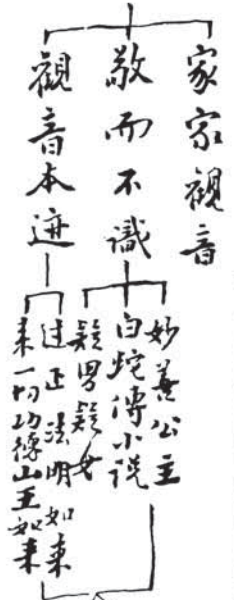 家家觀音
敬而不識
觀音本迹
妙善公主
白蛇傳小說
疑男疑女
過正法明如來
來一切功德山王如來